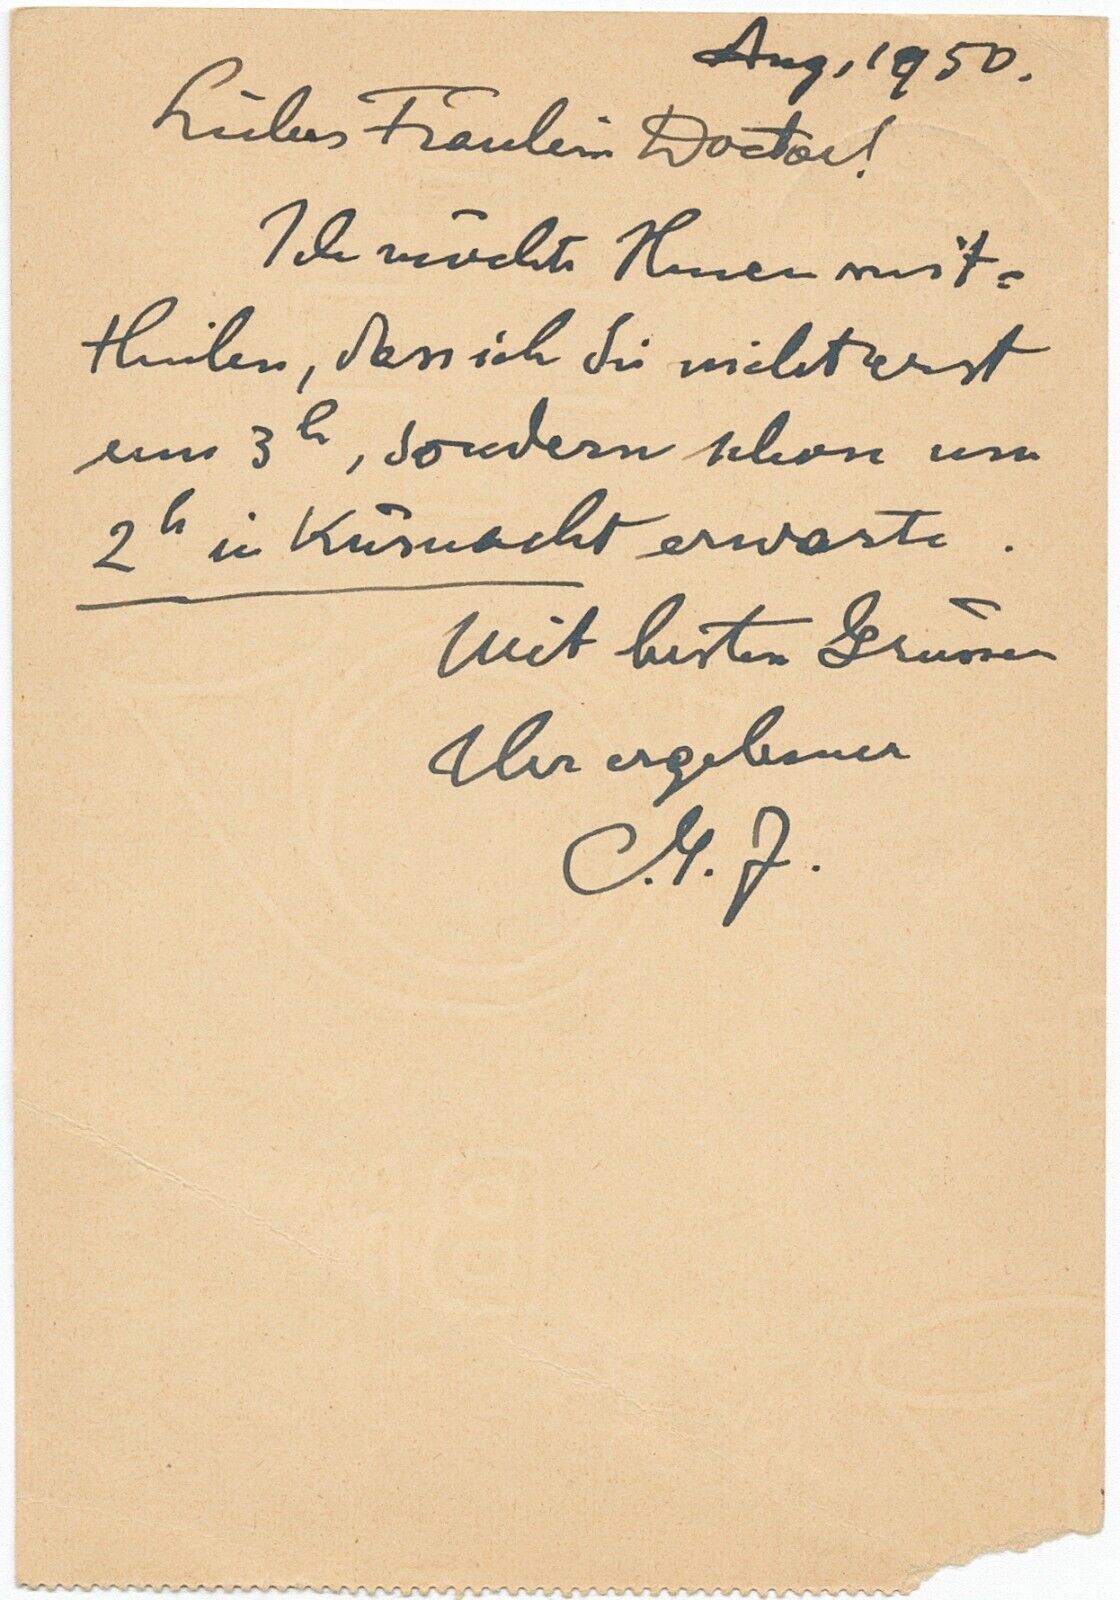 Aug, 1950.
Liebes Fräulein Doctor!
Ich möchte Ihnen mit-
theilen, dass ich Sie nicht erst
um 3h, sondern schon um
2h in Küsnacht erwarte.
Mit besten Grüssen
Ihr ergebener
C.G. J.